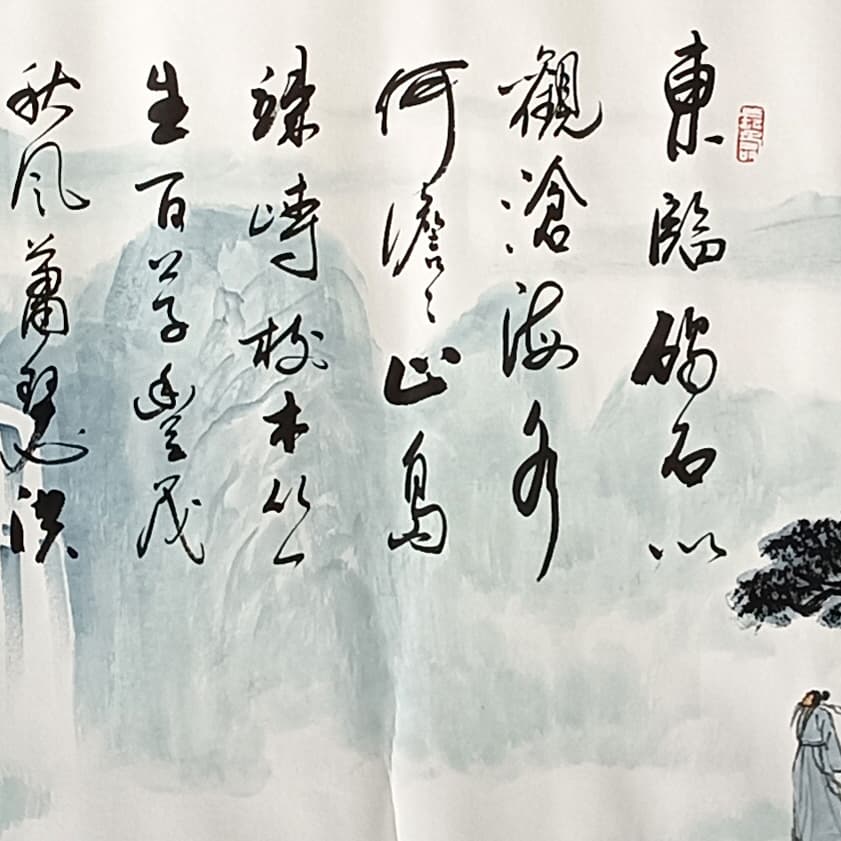 東臨碣石以
觀滄海水
何澹々山島
竦峙树木丛
生百草豐茂
秋風蕭瑟洪